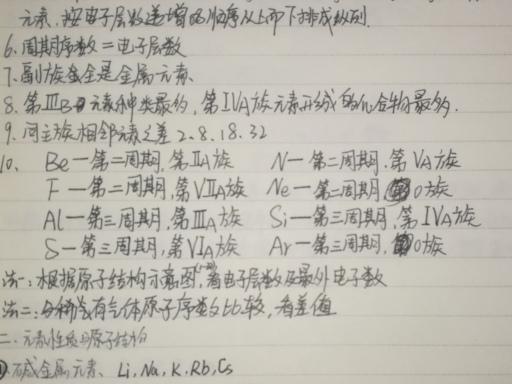 元素,按电子层数递增的顺序从上而下排成纵列.
6、周期序数=电子层数
7、副族全是金属元素.
8、第ⅢB 元素种类最多,第ⅣA族元素形成的化合物最多.
9、同主族相邻元素之差 2、8、18、32
10、 Be—第二周期,第ⅡA族 N—第二周期,第ⅤA族
F—第二周期,第ⅦA族 Ne—第二周期 0族
Al—第三周期,第ⅢA族 Si—第三周期,第ⅣA族
S—第三周期,第ⅥA族 Ar—第三周期, 0族
法一:根据原子结构示意图,看电子层数及最外电子数
法二:与稀有气体原子序数比较,看差值
二、元素性质与原子结构
①碱金属元素、Li、Na、K、Rb、Cs